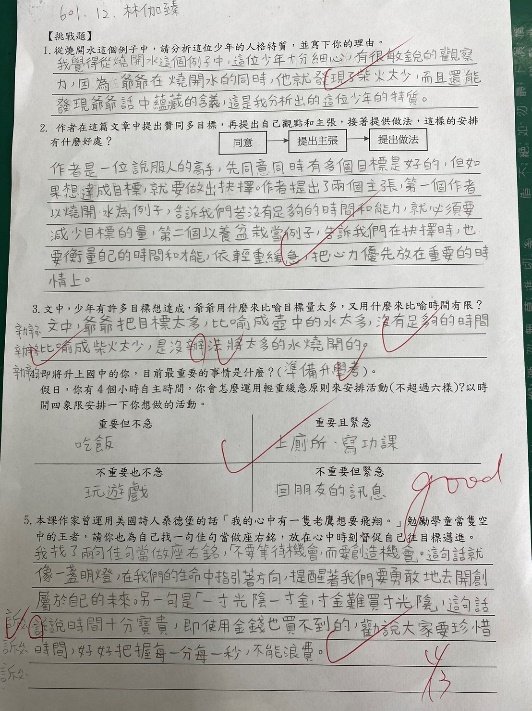 601. 12. 林伽臻
【挑戰題】
1.從燒開水這個例子中，請分析這位少年的人格特質，並寫下你的理由。
我覺得從燒開水這個例子中，這位少年十分細心，有很敏銳的觀察
力，因為爺爺在燒開水的同時，他就發現了柴火太少，而且還能
發現爺爺話中蘊藏的含義，這是我分析出的這位少年的特質。
2. 作者在這篇文章中提出贊同多目標，再提出自己觀點和主張，接著提供做法，這樣的安排
有什麼好處？
同意 提出主張 提出做法
作者是一位說服人的高手，先同意同時有多個目標是好的，但如
果想達成目標，就要做出抉擇。作者提出了兩個主張，第一個作者
以燒開水為例子，告訴我們若沒有足夠的時間和能力，就必須要
減少目標的量，第二個以養盆栽當例子，告訴我們在抉擇時，也
要衡量自己的時間和才能，依輕重緩急，把心力優先放在重要的時
情上。
3.文中，少年有許多目標想達成，爺爺用什麼來比喻目標量太多，又用什麼來比喻時間有限？
文中，爺爺把目標太多，比喻成壺中的水太多，沒有足夠的時間
比喻成柴火太少，是沒辦法將太多的水燒開的。
4.即將升上國中的你，目前最重要的事情是什麼？(準備升學考)。
假日，你有 4 個小時自主時間，你會怎麼運用輕重緩急原則來安排活動(不超過六樣)？以時
間四象限安排一下你想做的活動。
重要但不急 重要且緊急
吃飯 上廁所、寫功課
不重要也不急 不重要但緊急
玩遊戲 回朋友的訊息
good
5.本課作家曾運用美國詩人桑德堡的話「我的心中有一隻老鷹想要飛翔。」勉勵學童當隻空
中的王者，請你也為自己找一句佳句當做座右銘，放在心中時刻督促自己往目標邁進。
我找了兩句佳句當做座右銘，「不要等待機會，而要創造機會。」這句話就
像一盞明燈，在我們的生命中指引著方向，提醒著我們要勇敢地去開創
屬於自己的未來。另一句是「一寸光陰一寸金，寸金難買寸光陰」，這句話
訴說時間十分寶貴，即使用金錢也買不到的，勸說大家要珍惜
時間，好好把握每一分每一秒，不能浪費。
訴
訴
訴
4/13